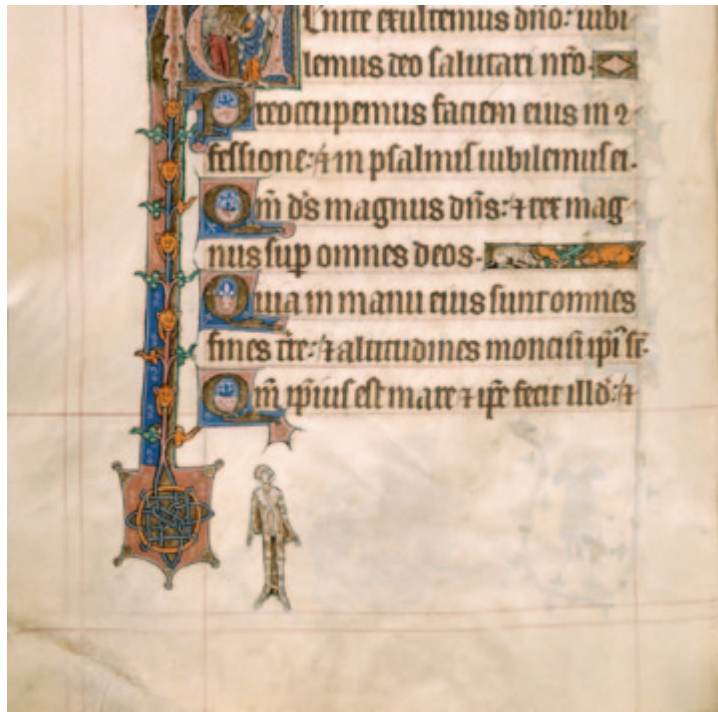 Uenite exultemus dño: iubi
lemus deo salutari nrõ.
Preoccupemus faciem eius in ꝯ
fessione: ⁊ in psalmis iubilemus ei.
Qm̃ ds̃ magnus dñs: ⁊ rex mag
nus sup omnes deos.
Quia in manu eius sunt omnes
fines tr̃e: ⁊ altitudines monciũ ip̃i s̃t.
Qm̃ ip̃ius est mare ⁊ ip̃e fecit illd̃: ⁊